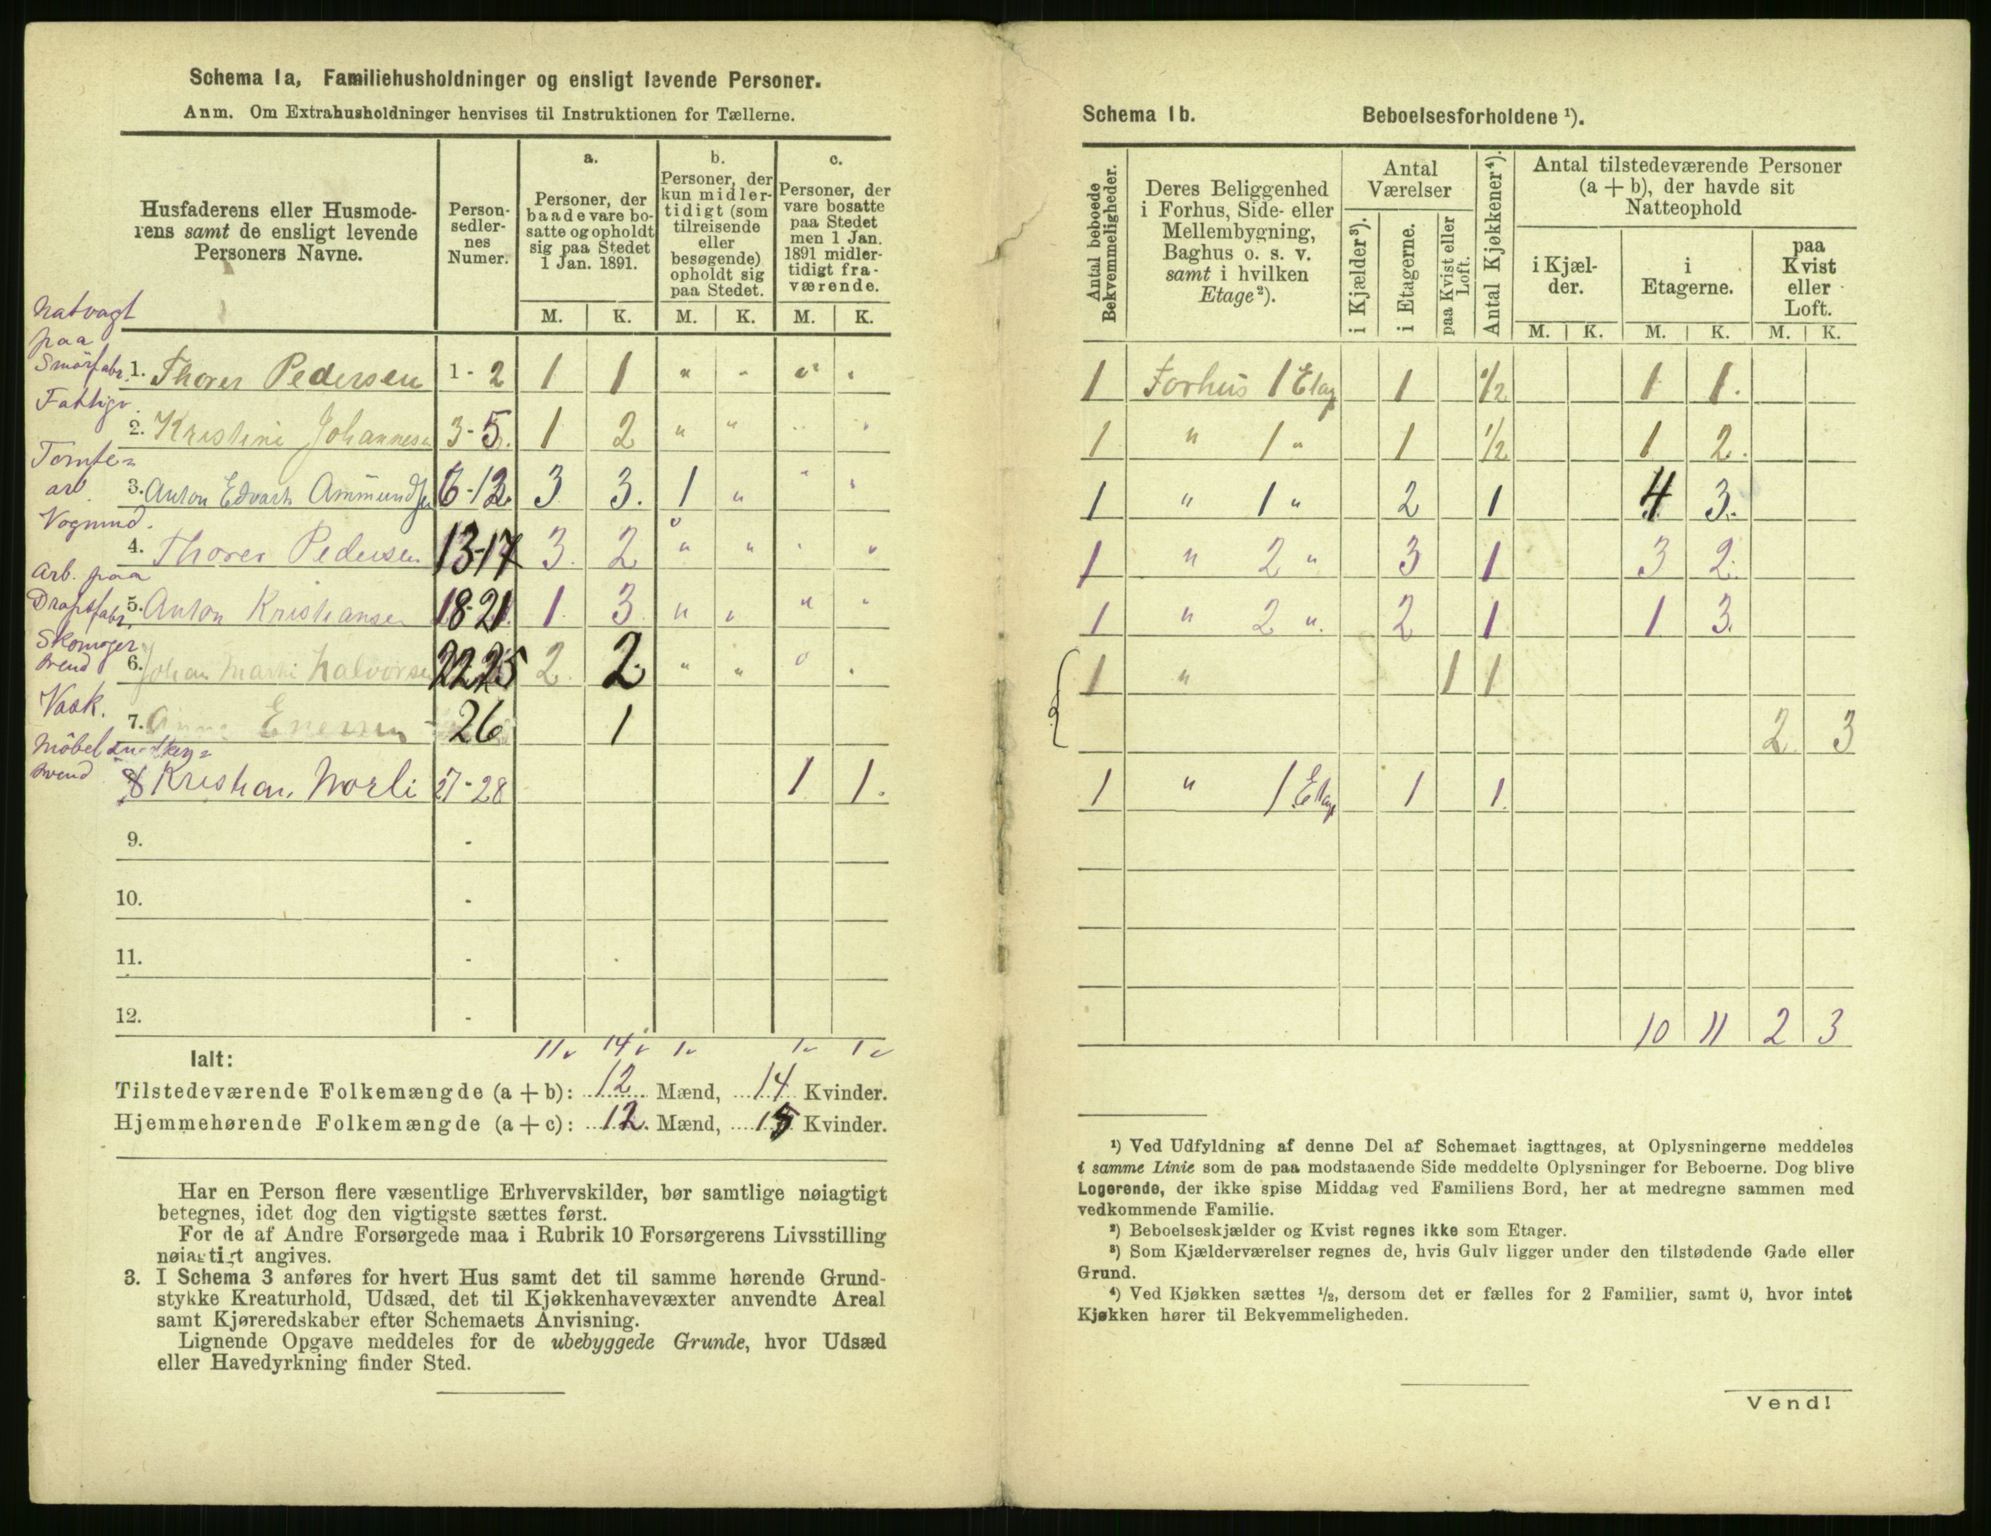 Schema 1a, Familiehusholdninger og ensligt levende Personer.
Anm. Om Extrahusholdninger henvises til Instruktionen for Tællerne.
Husfaderens eller Husmode-
rens samt de ensligt levende
Personers Navne.
Person-
sedler-
nes
Numer.
a.
Personer, der
baade vare bo-
satte og opholdt
sig paa Stedet
1 Jan. 1891.
b.
Personer, der
kun midler-
tidigt (som
tilreisende
eller
besøgende)
opholdt sig
paa Stedet.
c.
Personer, der
vare bosatte
paa Stedet
men 1 Jan.
1891 midler-
tidigt fra-
værende.
M. K. M. K. M. K.
Natvagt
paa
Smørfabr. 1. Thorer Pedersen 1-2 1 1 " " " "
Fattigv.
2. Kristine Johannesen 3-5. 1 2 " " " "
Tomte=
arb. 3. Anton Edvart Ammundsen 6-12. 3 3. 1 " " "
Vognmd.
4. Thorer Pedersen 13-17 3. 2 " " " "
Arb. paa
5. Anton Kristiansen 18-21. 1. 3 " " " "
Skomager
svend 6. Johan Halvorsen 22-25 2. 2. " " " "
Vask.
7. 26 1
Möbel
svend 8 Kristian Norli 27-28 1 1.
9. -
10. -
11. -
12. -
Ialt: 11 14 1 1 1
Tilstedeværende Folkemængde (a + b): 12 Mænd, 14 Kvinder.
Hjemmehørende Folkemængde (a + c): 12. Mænd, 15 Kvinder.
Har en Person flere væsentlige Erhvervskilder, bør samtlige nøiagtigt
betegnes, idet dog den vigtigste sættes først.
For de af Andre Forsørgede maa i Rubrik 10 Forsørgerens Livsstilling
nøiagtigt angives.
3. I Schema 3 anføres for hvert Hus samt det til samme hørende Grund-
stykke Kreaturhold, Udsæd, det til Kjøkkenhavevæxter anvendte Areal
samt Kjøreredskaber efter Schemaets Anvisning.
Lignende Opgave meddeles for de ubebyggede Grunde, hvor Udsæd
eller Havedyrkning finder Sted.
Schema 1b. Beboelsesforholdene ¹).
Antal beboede
Bekvemmeligheder.
Deres Beliggenhed
i Forhus, Side- eller
Mellembygning,
Baghus o. s. v.
samt i hvilken
Etage²).
Antal
Værelser
i Kjælder³).
i Etagerne.
paa Kvist eller
Loft.
Antal Kjøkkener⁴).
Antal tilstedeværende Personer
(a + b), der havde sit
Natteophold
i Kjæl-
der.
i
Etagerne.
paa
Kvist
eller
Loft.
M. K. M. K. M. K.
1 Forhus 1 Etag 1 1/2 1 1.
1 " 1 " 1 1/2 1 2.
1 " 1 " 2 1 4 3.
1 " 2 " 3 1 3 2.
1 " 2 " 2 1 1 3.
1 " 1 1
2 2 3
1 " 1 Etag 1 1.
10 11 2 3
¹) Ved Udfyldning af denne Del af Schemaet iagttages, at Oplysningerne meddeles
i samme Linie som de paa modstaaende Side meddelte Oplysninger for Beboerne. Dog blive
Logerende, der ikke spise Middag ved Familiens Bord, her at medregne sammen med
vedkommende Familie.
²) Beboelseskjælder og Kvist regnes ikke som Etager.
³) Som Kjælderværelser regnes de, hvis Gulv ligger under den tilstødende Gade eller
Grund.
⁴) Ved Kjøkken sættes ½, dersom det er fælles for 2 Familier, samt 0, hvor intet
Kjøkken hører til Bekvemmeligheden.
Vend!